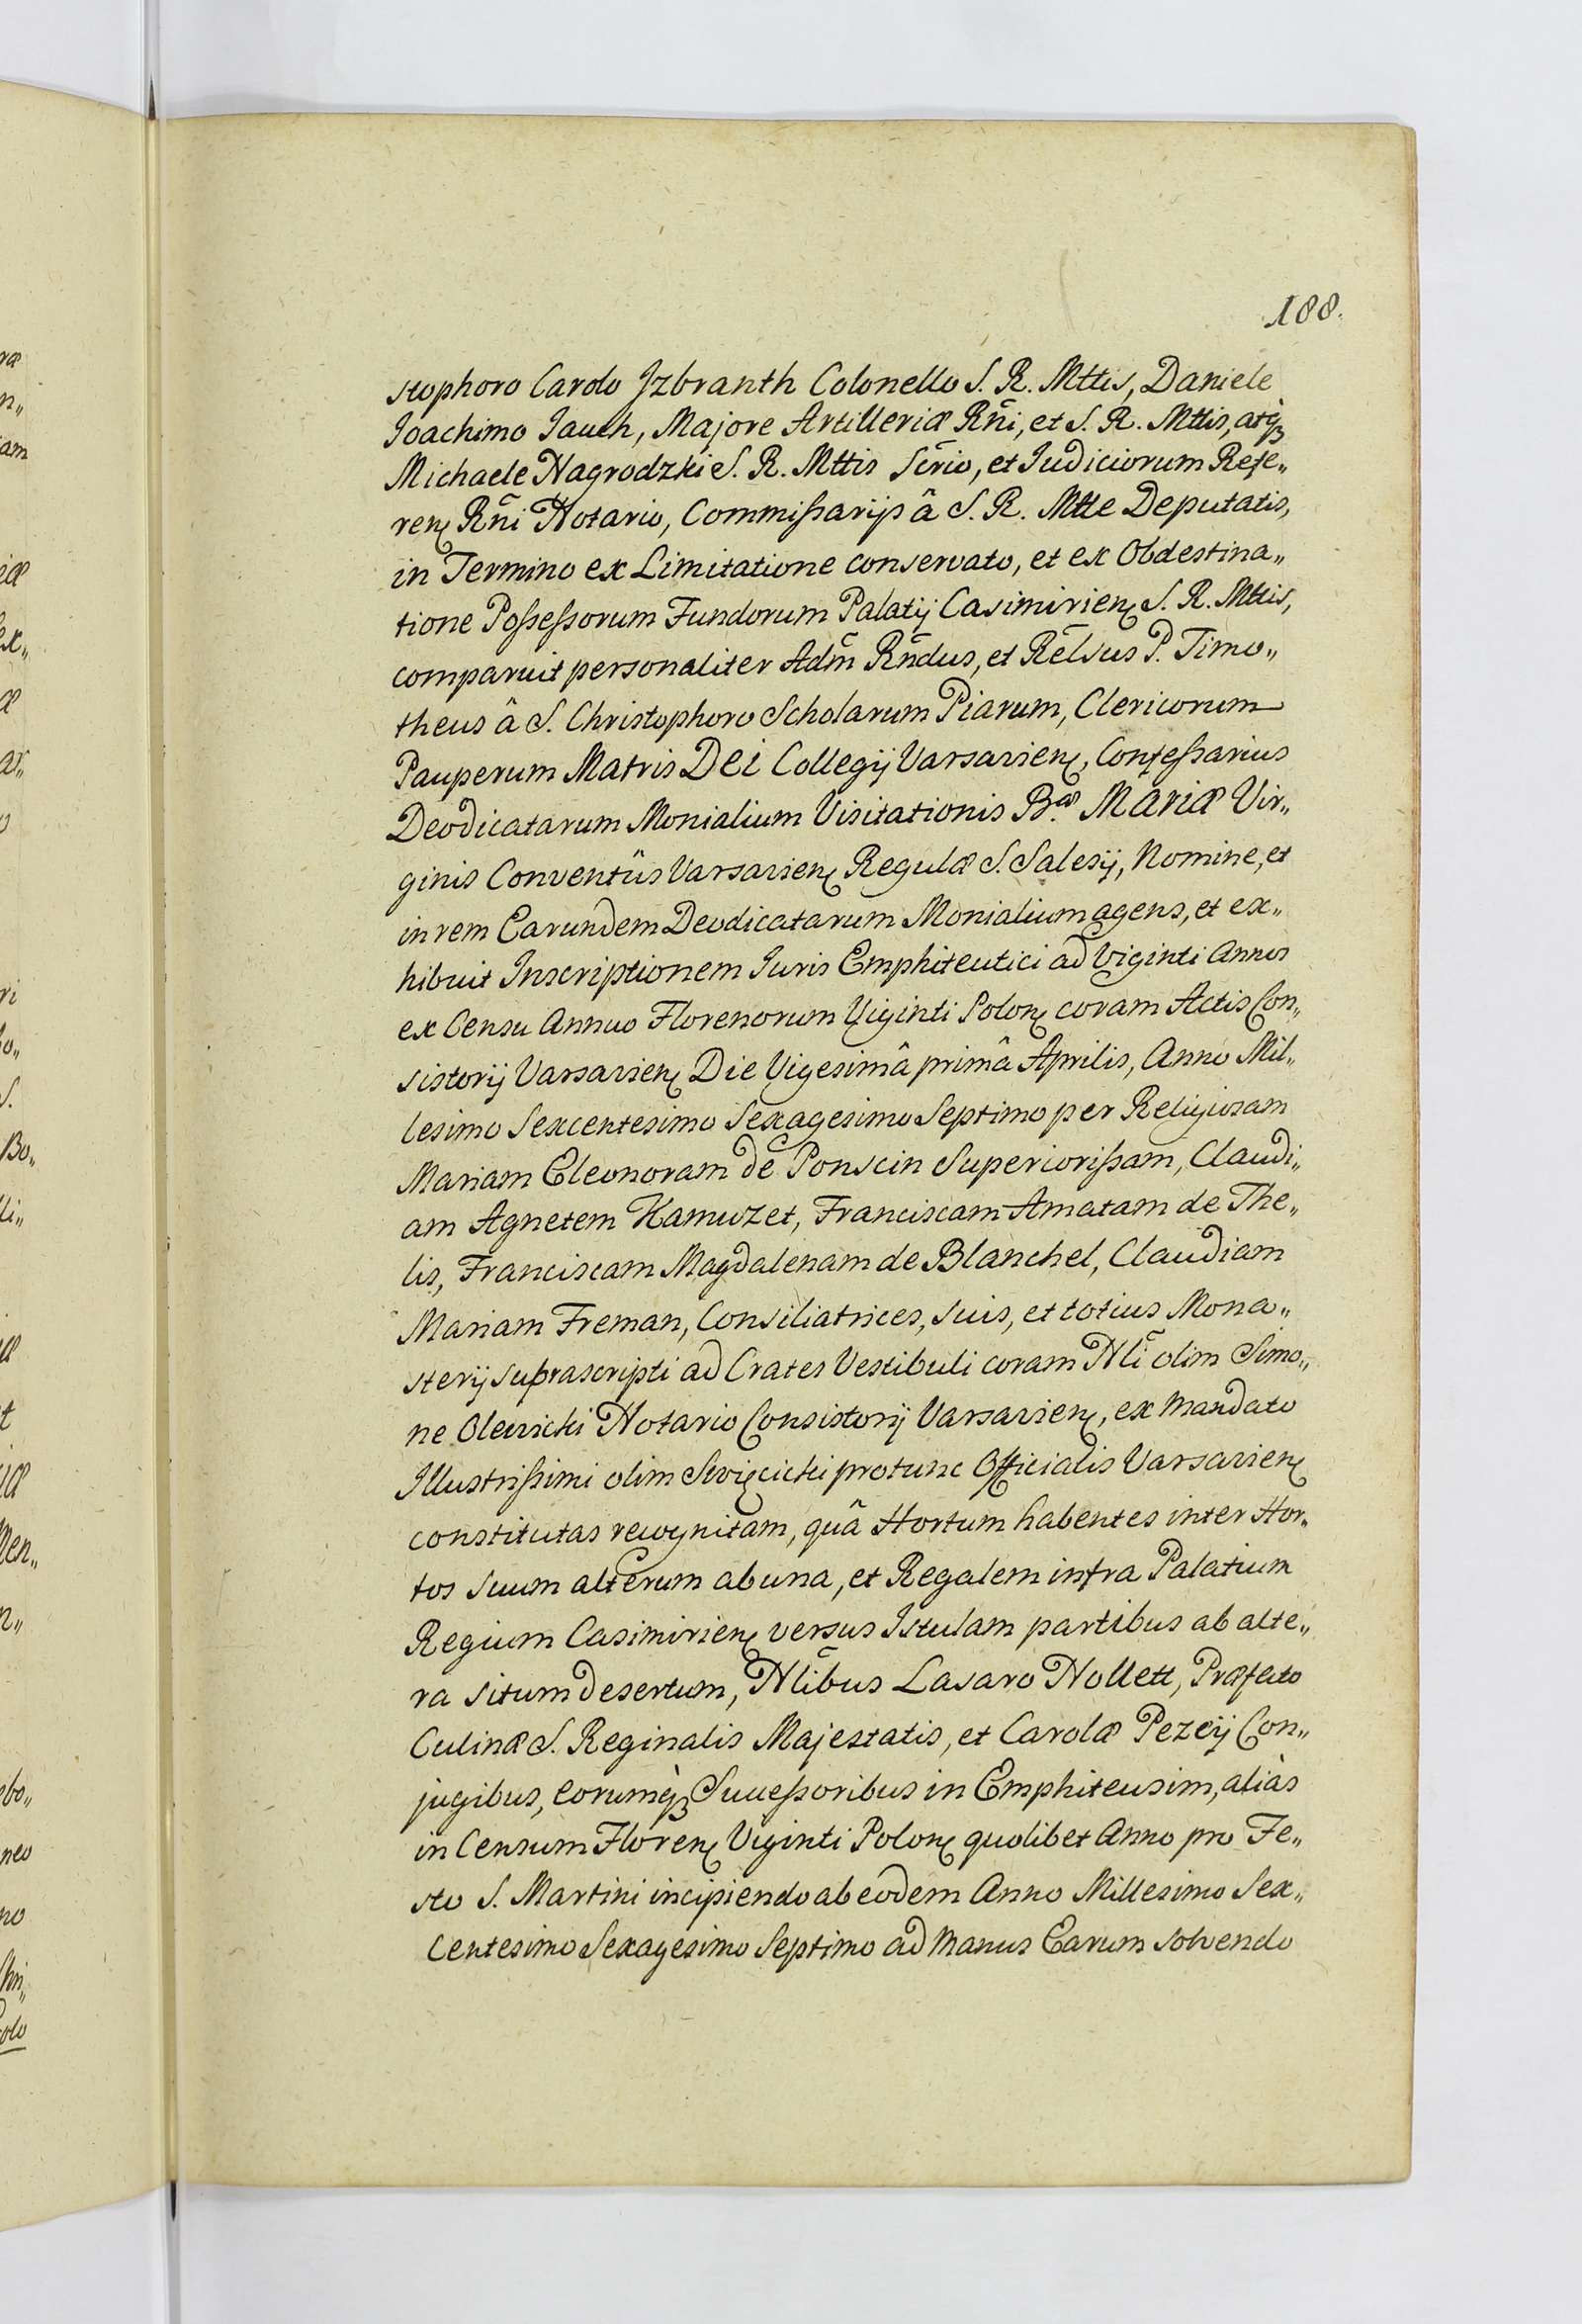 188.
stophoro Carolo Jzbranth Colonello S. R. Mttis, Daniele
Joachimo Jauch, Majore Artilleriæ Rñi, et S. R. Mttis, atq̀ꝫ
Michaele Nagrodzki S. R. Mttis Scrio, et Judiciorum Refe„
renꝫ Rñi Notario, Commißarijs â S. R. Mtte Deputatis,
in Termino ex Limitatione conservato, et ex Obdestina„
tione Poßeßorum Fundorum Palatij Casimirienꝫ S. R. Mttis,
comparuit personaliter Adm̃ Rñdus, et Rel̃sus P. Timo„
theus â S. Christophoro Scholarum Piarum, Clericorum
Pauperum Matris Dei Collegij Varsavienꝫ, Confeßarius
Deodicatarum Monialium Visitationis B.æ Mariæ Vir„
ginis Conventûs Varsavienꝫ Regulæ S. Salesij, Nomine, et
in rem Earundem Deodicatarum Monialium agens, et ex„
hibuit Inscriptionem Juris Emphiteutici ad Viginti Annos
ex Censu Annuo Florenorum Viginti Polonꝫ coram Actis Con„
sistorij Varsavienꝫ Die Vigesimâ primâ Aprilis, Anno Mil„
lesimo Sexcentesimo Sexagesimo Septimo per Religiosam
Mariam Eleonoram de Ponscin Superiorißam, Claudi„
am Agnetem Hamuzet, Franciscam Amatam de The„
lis, Franciscam Magdalenam de Blanchel, Claudiam
Mariam Freman, Consiliatrices, suis, et totius Mona„
sterij suprascripti ad Crates Vestibuli coram Nl̃i olim Simo„
ne Olewicki Notario Consistorij Varsavienꝫ, ex Mandato
Illustrißimi olim Swięcicki protunc Officialis Varsavienꝫ
constitutas recognitam, quâ Hortum habentes inter Hor„
tos suum alterum ab una, et Regalem infra Palatium
Regium Casimirienꝫ versus Istulam partibus ab alte„
ra situm desertum, Nl̃ibus Lasaro Nollett, Præfecto
Culinæ S. Reginalis Majestatis, et Carolæ Pezeij Con„
jugibus, eorumq̀ꝫ Succeßoribus in Emphiteusim, aliàs
in Censum Florenꝫ Viginti Polonꝫ quolibet Anno pro Fe„
sto S. Martini incipiendo ab eodem Anno Millesimo Sex„
Centesimo Sexagesimo Septimo ad Manus Earum solvendo